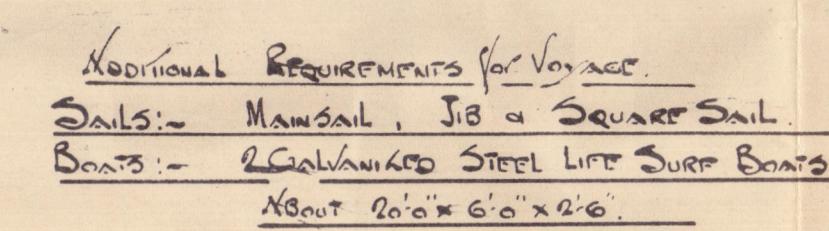 Additional Requirements for Voyage.
Sails:- Mainsail, Jib & Square Sail.
Boats:- 2 Galvanized Steel Life Surf Boats
About 20'-0" x 6'-0" x 2'-6".